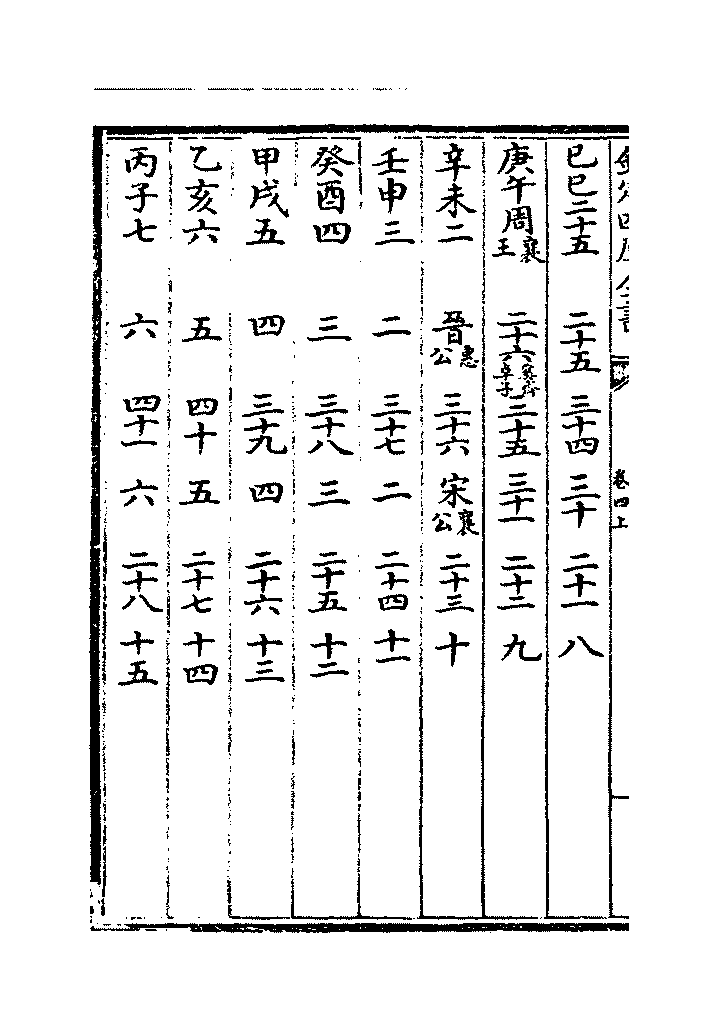 欽定四庫全書 卷四上
己巳二十五 二十五 三十四 三十 二十一 八
庚午周襄王 二十六奚齊卓子 三十五 三十一 二十二 九
辛未二 晉惠公 三十六 宋襄公 二十三 十
壬申三 二 三十七 二 二十四 十一
癸酉四 三 三十八 三 二十五 十二
甲戌五 四 三十九 四 二十六 十三
乙亥六 五 四十 五 二十七 十四
丙子七 六 四十一 六 二十八 十五